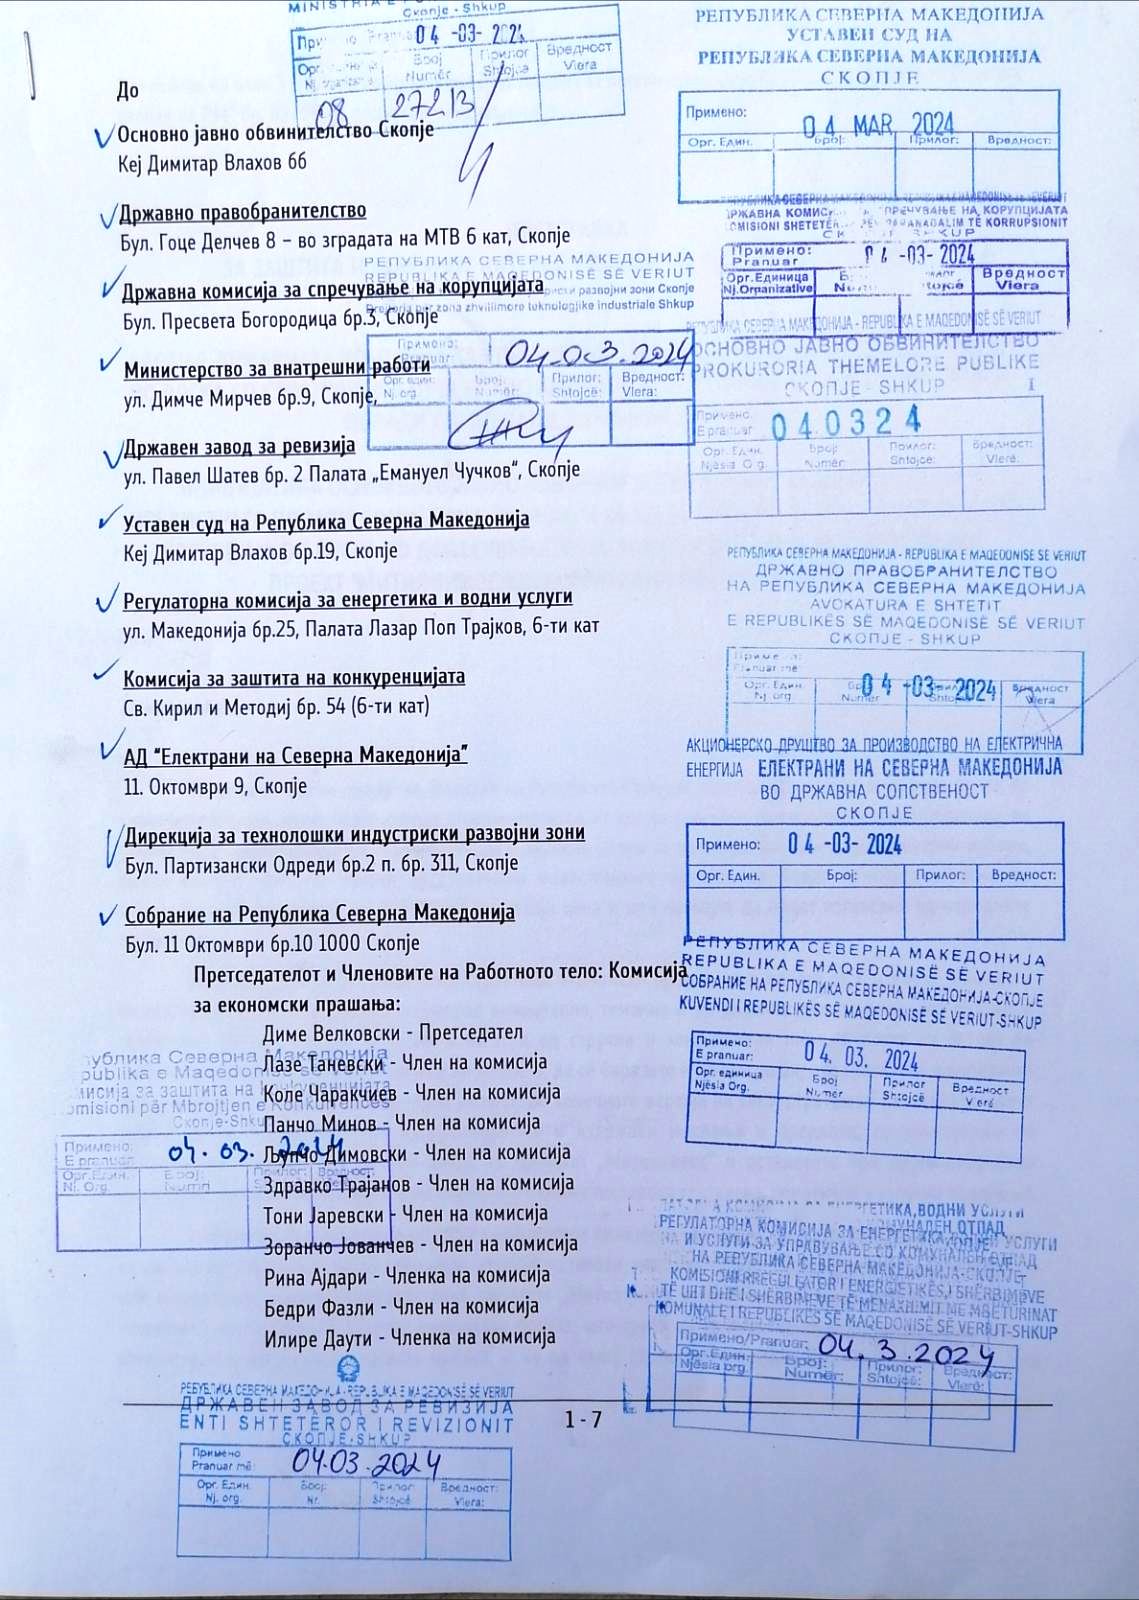 До
Основно јавно обвинителство Скопје
Кеј Димитар Влахов бб
Државно правобранителство
Бул. Гоце Делчев 8 – во зградата на МТВ 6 кат, Скопје
Државна комисија за спречување на корупцијата
Бул. Пресвета Богородица бр.3, Скопје
Министерство за внатрешни работи
ул. Димче Мирчев бр.9, Скопје,
Државен завод за ревизија
ул. Павел Шатев бр. 2 Палата „Емануел Чучков“, Скопје
Уставен суд на Република Северна Македонија
Кеј Димитар Влахов бр.19, Скопје
Регулаторна комисија за енергетика и водни услуги
ул. Македонија бр.25, Палата Лазар Поп Трајков, 6-ти кат
Комисија за заштита на конкуренцијата
Св. Кирил и Методиј бр. 54 (6-ти кат)
АД “Електрани на Северна Македонија”
11. Октомври 9, Скопје
Дирекција за технолошки индустриски развојни зони
Бул. Партизански Одреди бр.2 п. бр. 311, Скопје
Собрание на Република Северна Македонија
Бул. 11 Октомври бр.10 1000 Скопје
Претседателот и Членовите на Работното тело: Комисија
за економски прашања:
Диме Велковски - Претседател
Лазе Ганевски - Член на комисија
Коле Чаракчиев - Член на комисија
Панчо Минов - Член на комисија
Љупчо Димовски - Член на комисија
Здравко Трајанов - Член на комисија
Тони Јаревски - Член на комисија
Зоранчо Јованчев - Член на комисија
Рина Ајдари - Членка на комисија
Бедри Фазли - Член на комисија
Илире Даути - Членка на комисија
1 - 7
Скопје - Shkup
04 -03- 2024
Број Прилог Вредност
Numër Shtojcë Vlera
08 272/3
РЕПУБЛИКА СЕВЕРНА МАКЕДОНИЈА
УСТАВЕН СУД НА
РЕПУБЛИКА СЕВЕРНА МАКЕДОНИЈА
СКОПЈЕ
Примено:
04 MAR 2024
Орг. Един. Број: Прилог: Вредност:
Примено:
Pranuar
04 -03- 2024
Орг.Единица Вредност
Nj.Organizative Vlera
РЕПУБЛИКА СЕВЕРНА МАКЕДОНИЈА
REPUBLIKA E MAQEDONISË SË VERIUT
развојни зони Скопје
zona zhvillimore teknologjike industriale Shkup
Примено:
Pranuar:
04.03.2024
Орг. един: Број: Прилог: Вредност:
Nj. org. Numër: Shtojcë: Vlera:
РЕПУБЛИКА СЕВЕРНА МАКЕДОНИЈА - REPUBLIKA E MAQEDONISË SË VERIUT
ОСНОВНО ЈАВНО ОБВИНИТЕЛСТВО
PROKURORIA THEMELORE PUBLIKE
СКОПЈЕ - SHKUP
Примено:
E pranuar:
040324
Орг. Един. Број: Прилог: Вредност:
Njësia Org. Numër Shtojcë: Vlerë:
РЕПУБЛИКА СЕВЕРНА МАКЕДОНИЈА - REPUBLIKA E MAQEDONISË SË VERIUT
ДРЖАВНО ПРАВОБРАНИТЕЛСТВО
НА РЕПУБЛИКА СЕВЕРНА МАКЕДОНИЈА
AVOKATURA E SHTETIT
E REPUBLIKËS SË MAQEDONISË SË VERIUT
СКОПЈЕ - SHKUP
04 -03- 2024
Орг. Един. Вредност
Nj. org. Vlera
АКЦИОНЕРСКО ДРУШТВО ЗА ПРОИЗВОДСТВО НА ЕЛЕКТРИЧНА
ЕНЕРГИЈА ЕЛЕКТРАНИ НА СЕВЕРНА МАКЕДОНИЈА
ВО ДРЖАВНА СОПСТВЕНОСТ
СКОПЈЕ
Примено: 04 -03- 2024
Орг. Един. Број: Прилог: Вредност:
РЕПУБЛИКА СЕВЕРНА МАКЕДОНИЈА
REPUBLIKA E MAQEDONISË SË VERIUT
СОБРАНИЕ НА РЕПУБЛИКА СЕВЕРНА МАКЕДОНИЈА-СКОПЈЕ
KUVENDI I REPUBLIKËS SË MAQEDONISË SË VERIUT-SHKUP
Примено:
E pranuar:
04. 03. 2024
Орг. единица Број Прилог Вредност
Njësia Org. Numër Shtojcë Vlerë
Скопје-Shkup
Примено:
E pranuar
04. 03. 2024
Орг.Един. Број:
Nj. Org.
РЕГУЛАТОРНА КОМИСИЈА ЗА ЕНЕРГЕТИКА
KOMUNALE I REPUBLIKËS SË MAQEDONISË SË VERIUT-SHKUP
Примено/Pranuar: 04.3.2024
Орг.Един. Број: Прилог: Вредност:
Njësia org. Numër: Shtojcë: Vlerë:
РЕПУБЛИКА СЕВЕРНА МАКЕДОНИЈА - REPUBLIKA E MAQEDONISË SË VERIUT
ДРЖАВЕН ЗАВОД ЗА РЕВИЗИЈА
ENTI SHTETËROR I REVIZIONIT
СКОПЈЕ-SHKUP
Примено
Pranuar më:
04.03.2024
Орг. Един. Број: Прилог Вредност:
Nj. org. Nr. Shtojcë Vlera: